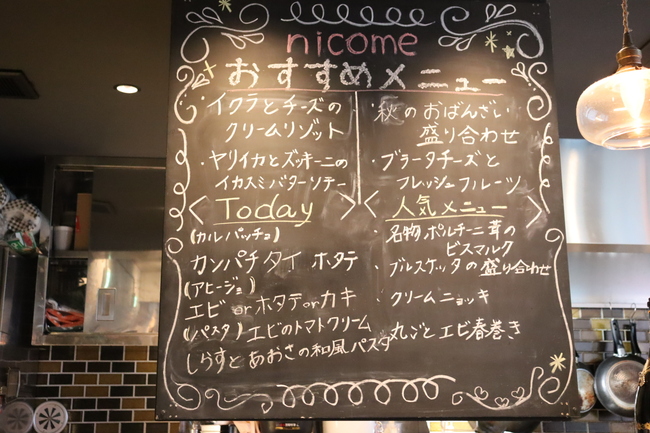 nicome
おすすめメニュー
・イクラとチーズの
クリームリゾット
・ヤリイカとズッキーニの
イカスミバターソテー
・秋のおばんざい
盛り合わせ
・ブラータチーズと
フレッシュフルーツ
Today
(カルパッチョ)
カンパチ タイ ホタテ
(アヒージョ)
エビ or ホタテ or カキ
(パスタ) エビのトマトクリーム
しらすとあおさの和風パスタ
人気メニュー
・名物 ポルチーニ茸の
ビスマルク
・ブルスケッタの盛り合わせ
・クリームニョッキ
丸ごとエビ春巻き